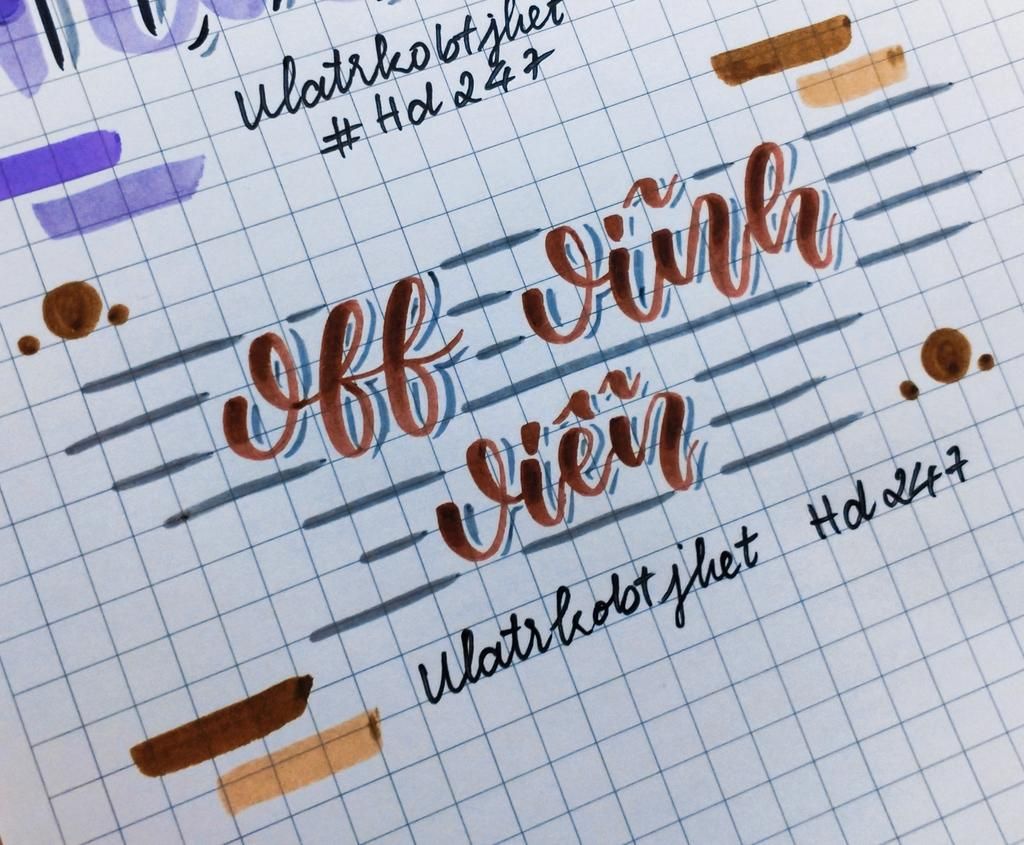 Ulatrkobtjhet
# Hd 247
off vĩnh
viễn
Ulatrkobtjhet Hd 247